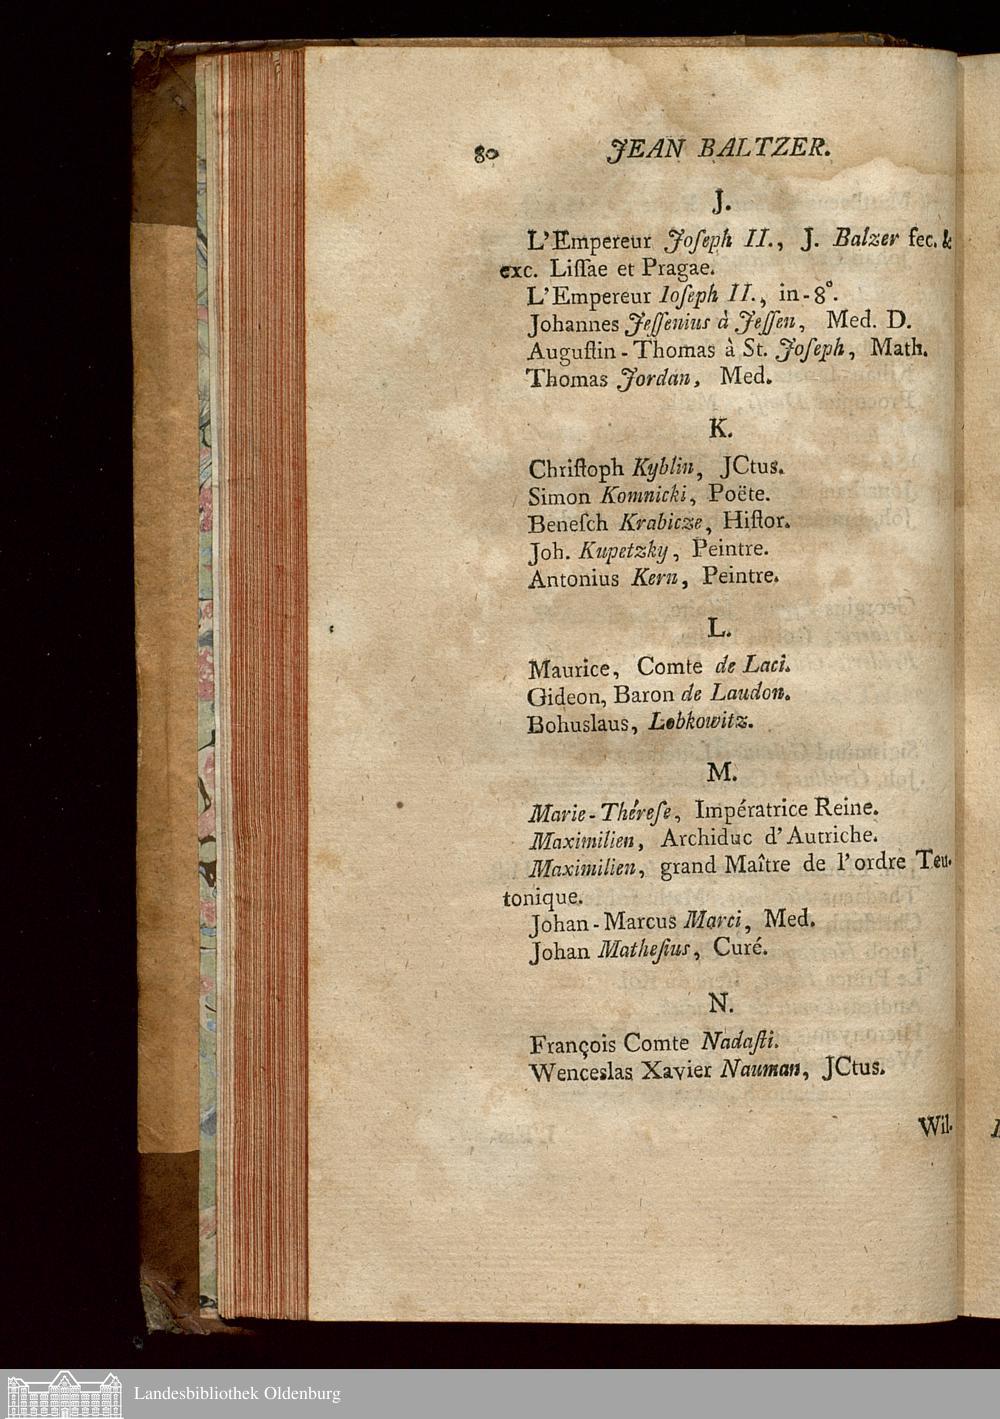 80 JEAN BALTZER.
J.
L'Empereur Joſeph II., J. Balzer fec. &
exc. Liſſae et Pragae.
L'Empereur Ioſeph II., in-8°.
Johannes Jeſſenius à Jeſſen, Med. D.
Auguſtin-Thomas à St. Joſeph, Math.
Thomas Jordan, Med.
K.
Chriſtoph Kyblin, JCtus.
Simon Komnicki, Poëte.
Beneſch Krabicze, Hiſtor.
Joh. Kupetzky, Peintre.
Antonius Kern, Peintre.
L.
Maurice, Comte de Laci.
Gideon, Baron de Laudon.
Bohuslaus, Lobkowitz.
M.
Marie-Théreſe, Impératrice Reine.
Maximilien, Archiduc d'Autriche.
Maximilien, grand Maître de l'ordre Teu-
tonique.
Johan-Marcus Marci, Med.
Johan Matheſius, Curé.
N.
François Comte Nadaſti.
Wenceslas Xavier Nauman, JCtus.
Wil-
Landesbibliothek Oldenburg